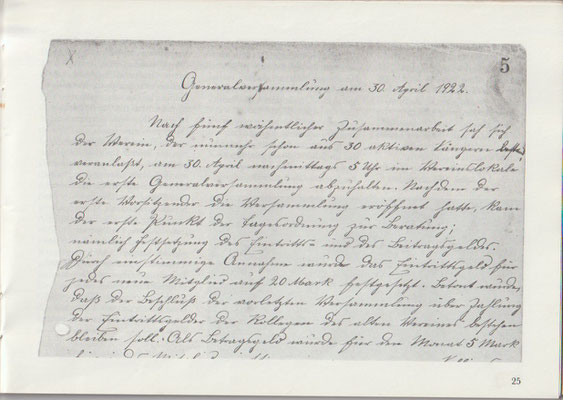 5
Generalversammlung am 30. April 1922.
Nach fünf wöhentlicher Zusammenarbeit sah sich
der Verein, der nunmehr schon aus 30 aktiven Sängern
veranlaßt, am 30. April nachmittags 5 Uhr im Vereinslokale
die erste Generalversammlung abzuhalten. Nachdem der
erste Vorsitzender die Versammlung eröffnet hatte, kam
der erste Punkt der Tagesordnung zur Beratung;
nämlich Festsetzung des Eintritts- und des Beitragsgeldes.
Durch einstimmige Annahme wurde das Eintrittsgeld für
jedes neue Mitglied auf 20 Mark festgesetzt. Betont wurde,
daß der Beschluß der vorletzten Versammlung über Zahlung
der Eintrittsgelder der Kollegen des alten Vereines bestehen
bleiben soll. Als Beitragsgeld wurde für den Monat 5 Mark
25